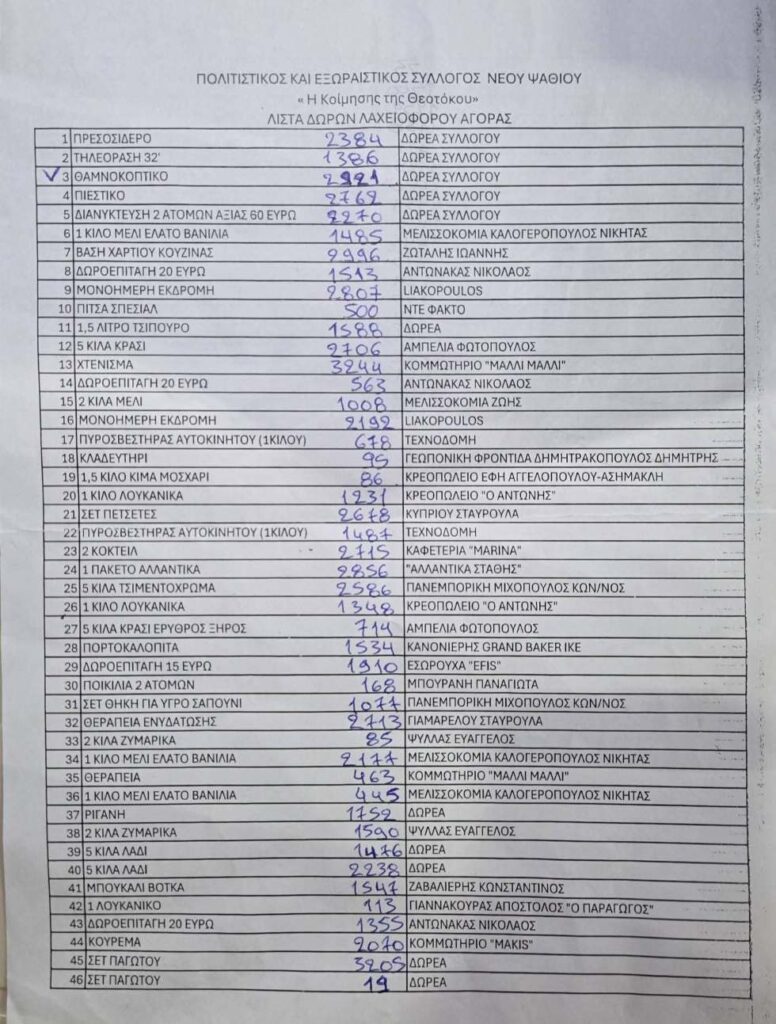 ΠΟΛΙΤΙΣΤΙΚΟΣ ΚΑΙ ΕΞΩΡΑΙΣΤΙΚΟΣ ΣΥΛΛΟΓΟΣ ΝΕΟΥ ΨΑΘΙΟΥ
« Η Κοίμησης της Θεοτόκου»
ΛΙΣΤΑ ΔΩΡΩΝ ΛΑΧΕΙΟΦΟΡΟΥ ΑΓΟΡΑΣ
1 ΠΡΕΣΟΣΙΔΕΡΟ 2384 ΔΩΡΕΑ ΣΥΛΛΟΓΟΥ
2 ΤΗΛΕΟΡΑΣΗ 32' 1386 ΔΩΡΕΑ ΣΥΛΛΟΓΟΥ
3 ΘΑΜΝΟΚΟΠΤΙΚΟ 2921 ΔΩΡΕΑ ΣΥΛΛΟΓΟΥ
4 ΠΙΕΣΤΙΚΟ 2762 ΔΩΡΕΑ ΣΥΛΛΟΓΟΥ
5 ΔΙΑΝΥΚΤΕΥΣΗ 2 ΑΤΟΜΩΝ ΑΞΙΑΣ 60 ΕΥΡΩ 2270 ΔΩΡΕΑ ΣΥΛΛΟΓΟΥ
6 1 ΚΙΛΟ ΜΕΛΙ ΕΛΑΤΟ ΒΑΝΙΛΙΑ 1485 ΜΕΛΙΣΣΟΚΟΜΙΑ ΚΑΛΟΓΕΡΟΠΟΥΛΟΣ ΝΙΚΗΤΑΣ
7 ΒΑΣΗ ΧΑΡΤΙΟΥ ΚΟΥΖΙΝΑΣ 2996 ΖΩΤΑΛΗΣ ΙΩΑΝΝΗΣ
8 ΔΩΡΟΕΠΙΤΑΓΗ 20 ΕΥΡΩ 1513 ΑΝΤΩΝΑΚΑΣ ΝΙΚΟΛΑΟΣ
9 ΜΟΝΟΗΜΕΡΗ ΕΚΔΡΟΜΗ 2807 LIAKOPOULOS
10 ΠΙΤΣΑ ΣΠΕΣΙΑΛ 500 ΝΤΕ ΦΑΚΤΟ
11 1,5 ΛΙΤΡΟ ΤΣΙΠΟΥΡΟ 1588 ΔΩΡΕΑ
12 5 ΚΙΛΑ ΚΡΑΣΙ 2706 ΑΜΠΕΛΙΑ ΦΩΤΟΠΟΥΛΟΣ
13 ΧΤΕΝΙΣΜΑ 3244 ΚΟΜΜΩΤΗΡΙΟ "ΜΑΛΛΙ ΜΑΛΛΙ"
14 ΔΩΡΟΕΠΙΤΑΓΗ 20 ΕΥΡΩ 563 ΑΝΤΩΝΑΚΑΣ ΝΙΚΟΛΑΟΣ
15 2 ΚΙΛΑ ΜΕΛΙ 1008 ΜΕΛΙΣΣΟΚΟΜΙΑ ΖΩΗΣ
16 ΜΟΝΟΗΜΕΡΗ ΕΚΔΡΟΜΗ 2192 LIAKOPOULOS
17 ΠΥΡΟΣΒΕΣΤΗΡΑΣ ΑΥΤΟΚΙΝΗΤΟΥ (1ΚΙΛΟΥ) 678 ΤΕΧΝΟΔΟΜΗ
18 ΚΛΑΔΕΥΤΗΡΙ 95 ΓΕΩΠΟΝΙΚΗ ΦΡΟΝΤΙΔΑ ΔΗΜΗΤΡΑΚΟΠΟΥΛΟΣ ΔΗΜΗΤΡΗΣ
19 1,5 ΚΙΛΟ ΚΙΜΑ ΜΟΣΧΑΡΙ 86 ΚΡΕΟΠΩΛΕΙΟ ΕΦΗ ΑΓΓΕΛΟΠΟΥΛΟΥ-ΑΣΗΜΑΚΛΗ
20 1 ΚΙΛΟ ΛΟΥΚΑΝΙΚΑ 1231 ΚΡΕΟΠΩΛΕΙΟ "Ο ΑΝΤΩΝΗΣ"
21 ΣΕΤ ΠΕΤΣΕΤΕΣ 2678 ΚΥΠΡΙΟΥ ΣΤΑΥΡΟΥΛΑ
22 ΠΥΡΟΣΒΕΣΤΗΡΑΣ ΑΥΤΟΚΙΝΗΤΟΥ (1ΚΙΛΟΥ) 1487 ΤΕΧΝΟΔΟΜΗ
23 2 ΚΟΚΤΕΙΛ 2715 ΚΑΦΕΤΕΡΙΑ "MARINA"
24 1 ΠΑΚΕΤΟ ΑΛΛΑΝΤΙΚΑ 2856 "ΑΛΛΑΝΤΙΚΑ ΣΤΑΘΗΣ"
25 5 ΚΙΛΑ ΤΣΙΜΕΝΤΟΧΡΩΜΑ 2586 ΠΑΝΕΜΠΟΡΙΚΗ ΜΙΧΟΠΟΥΛΟΣ ΚΩΝ/ΝΟΣ
26 1 ΚΙΛΟ ΛΟΥΚΑΝΙΚΑ 1348 ΚΡΕΟΠΩΛΕΙΟ "Ο ΑΝΤΩΝΗΣ"
27 5 ΚΙΛΑ ΚΡΑΣΙ ΕΡΥΘΡΟΣ ΞΗΡΟΣ 714 ΑΜΠΕΛΙΑ ΦΩΤΟΠΟΥΛΟΣ
28 ΠΟΡΤΟΚΑΛΟΠΙΤΑ 1534 ΚΑΝΟΝΙΕΡΗΣ GRAND BAKER IKE
29 ΔΩΡΟΕΠΙΤΑΓΗ 15 ΕΥΡΩ 1910 ΕΣΩΡΟΥΧΑ "EFIS"
30 ΠΟΙΚΙΛΙΑ 2 ΑΤΟΜΩΝ 168 ΜΠΟΥΡΑΝΗ ΠΑΝΑΓΙΩΤΑ
31 ΣΕΤ ΘΗΚΗ ΓΙΑ ΥΓΡΟ ΣΑΠΟΥΝΙ 1077 ΠΑΝΕΜΠΟΡΙΚΗ ΜΙΧΟΠΟΥΛΟΣ ΚΩΝ/ΝΟΣ
32 ΘΕΡΑΠΕΙΑ ΕΝΥΔΑΤΩΣΗΣ 2713 ΓΙΑΜΑΡΕΛΟΥ ΣΤΑΥΡΟΥΛΑ
33 2 ΚΙΛΑ ΖΥΜΑΡΙΚΑ 85 ΨΥΛΛΑΣ ΕΥΑΓΓΕΛΟΣ
34 1 ΚΙΛΟ ΜΕΛΙ ΕΛΑΤΟ ΒΑΝΙΛΙΑ 2177 ΜΕΛΙΣΣΟΚΟΜΙΑ ΚΑΛΟΓΕΡΟΠΟΥΛΟΣ ΝΙΚΗΤΑΣ
35 ΘΕΡΑΠΕΙΑ 463 ΚΟΜΜΩΤΗΡΙΟ "ΜΑΛΛΙ ΜΑΛΛΙ"
36 1 ΚΙΛΟ ΜΕΛΙ ΕΛΑΤΟ ΒΑΝΙΛΙΑ 445 ΜΕΛΙΣΣΟΚΟΜΙΑ ΚΑΛΟΓΕΡΟΠΟΥΛΟΣ ΝΙΚΗΤΑΣ
37 ΡΙΓΑΝΗ 1752 ΔΩΡΕΑ
38 2 ΚΙΛΑ ΖΥΜΑΡΙΚΑ 1590 ΨΥΛΛΑΣ ΕΥΑΓΓΕΛΟΣ
39 5 ΚΙΛΑ ΛΑΔΙ 1476 ΔΩΡΕΑ
40 5 ΚΙΛΑ ΛΑΔΙ 2238 ΔΩΡΕΑ
41 ΜΠΟΥΚΑΛΙ ΒΟΤΚΑ 1547 ΖΑΒΑΛΙΕΡΗΣ ΚΩΝΣΤΑΝΤΙΝΟΣ
42 1 ΛΟΥΚΑΝΙΚΟ 113 ΓΙΑΝΝΑΚΟΥΡΑΣ ΑΠΟΣΤΟΛΟΣ "Ο ΠΑΡΑΓΩΓΟΣ"
43 ΔΩΡΟΕΠΙΤΑΓΗ 20 ΕΥΡΩ 1355 ΑΝΤΩΝΑΚΑΣ ΝΙΚΟΛΑΟΣ
44 ΚΟΥΡΕΜΑ 2070 ΚΟΜΜΩΤΗΡΙΟ "MAKIS"
45 ΣΕΤ ΠΑΓΩΤΟΥ 3205 ΔΩΡΕΑ
46 ΣΕΤ ΠΑΓΩΤΟΥ 19 ΔΩΡΕΑ